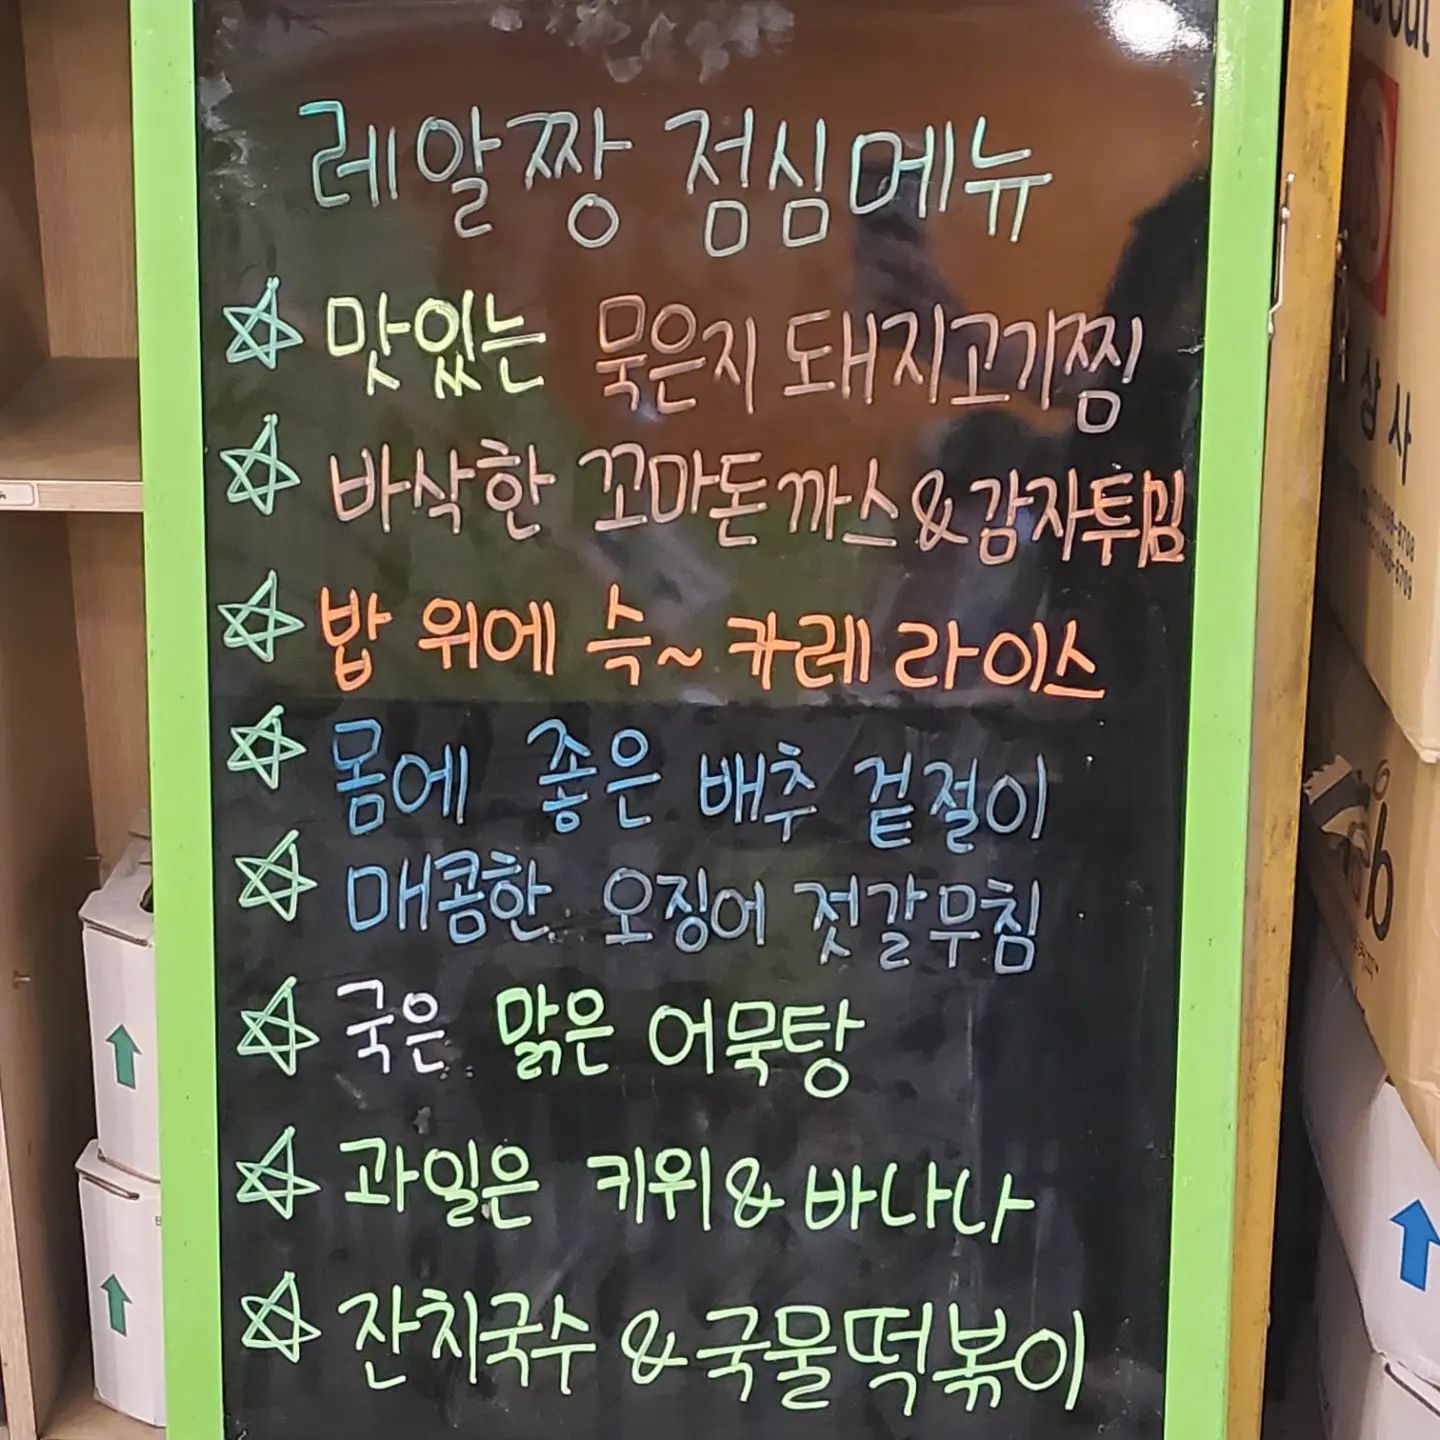 레알짱 점심메뉴
☆ 맛있는 묵은지 돼지고기찜
☆ 바삭한 꼬마돈까스&감자튀김
☆ 밥 위에 슥~ 카레 라이스
☆ 몸에 좋은 배추 겉절이
☆ 매콤한 오징어 젓갈무침
☆ 국은 맑은 어묵탕
☆ 과일은 키위 & 바나나
☆ 잔치국수 & 국물떡볶이
out
상사